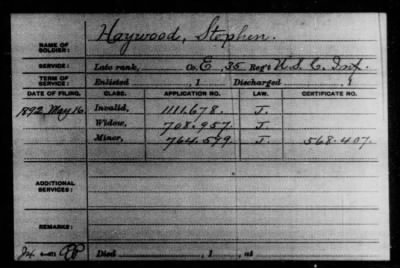 NAME OF SOLDIER: Haywood, Stephen.
SERVICE: Late rank, Co. E, 35 Reg't U.S.C. Inf.
TERM OF SERVICE: Enlisted , 1 Discharged , 1
DATE OF FILING. CLASS. APPLICATION NO. LAW. CERTIFICATE NO.
1892, May 16 Invalid, 1111.678. J.
Widow, 708.957. J.
Minor, 764.599. J. 568.407.
ADDITIONAL SERVICES:
REMARKS:
Died , 1 , at